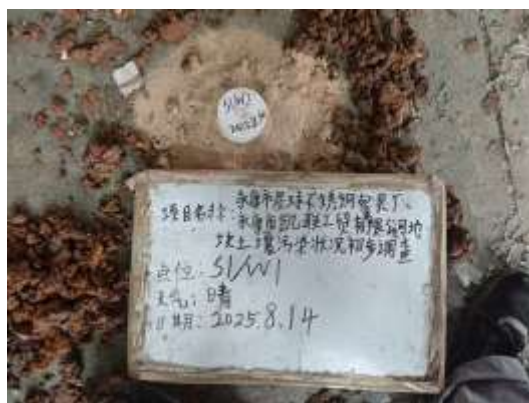 S1/W1
2025.8.14
项目名称：永康市屋珠不锈钢包装厂、
永康市凯联工贸有限公司地
块土壤污染状况初步调查
点位：S1/W1
天气：晴
日期：2025.8.14